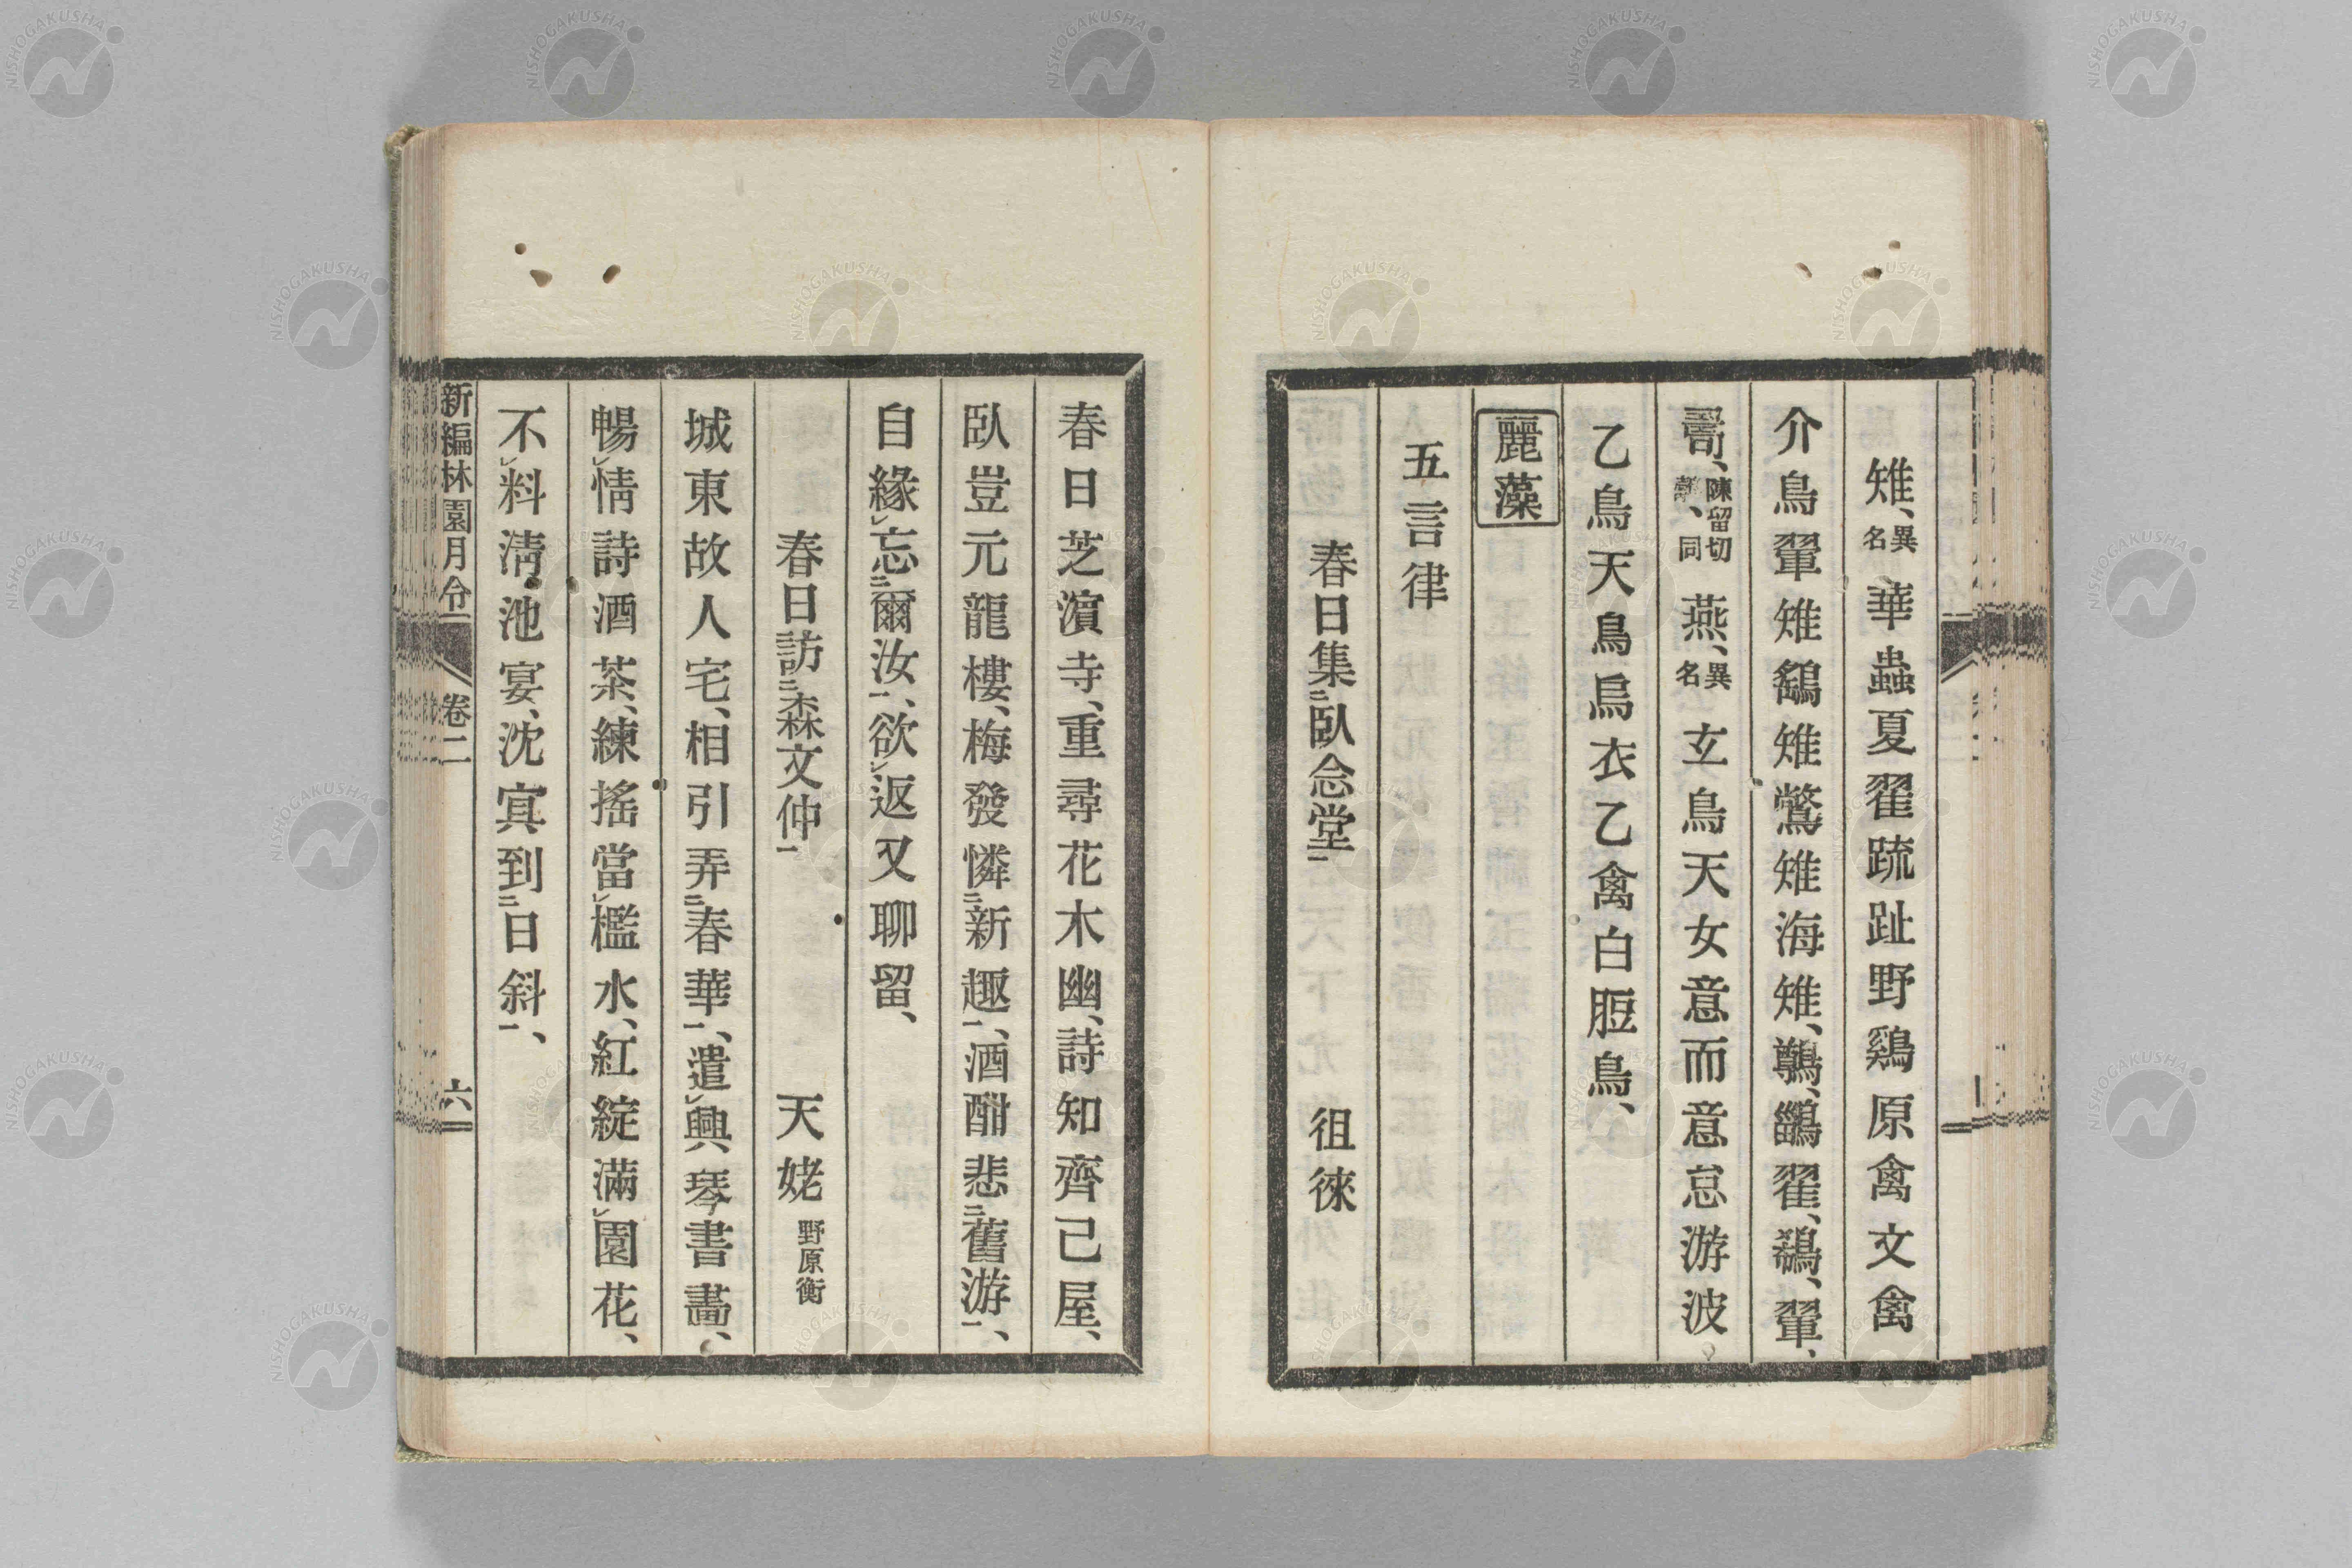 雉、異名 華蟲夏翟疏趾野鷄原禽文禽
介鳥翬雉鷂雉鷩雉海雉、鷷、鶅、翟、鵗、翬、
陳留切 同 燕、異名 玄鳥天女意而意怠游波
乙鳥天鳥烏衣乙禽白脰鳥、
麗藻
五言律
春日集二臥念堂一 徂徠
春日芝濵寺、重尋花木幽、詩知齊己屋、
臥豈元龍樓、梅發憐二新趣一、酒酣悲二舊游一、
自緣レ忘二爾汝一、欲レ返又聊留、
春日訪二森文仲一 天姥 野原衡
城東故人宅、相引弄二春華一、遣レ興琴書畵、
暢レ情詩酒茶、練搖當レ檻水、紅綻滿レ園花、
不レ料淸池宴、沈寘到二日斜一、
新編林園月令 卷二 六
NISHOGAKUSHA